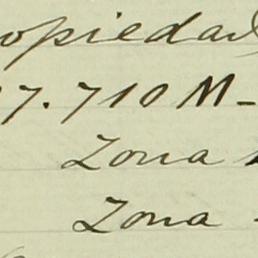 opiedad
7.710 M-
Zona
Zona